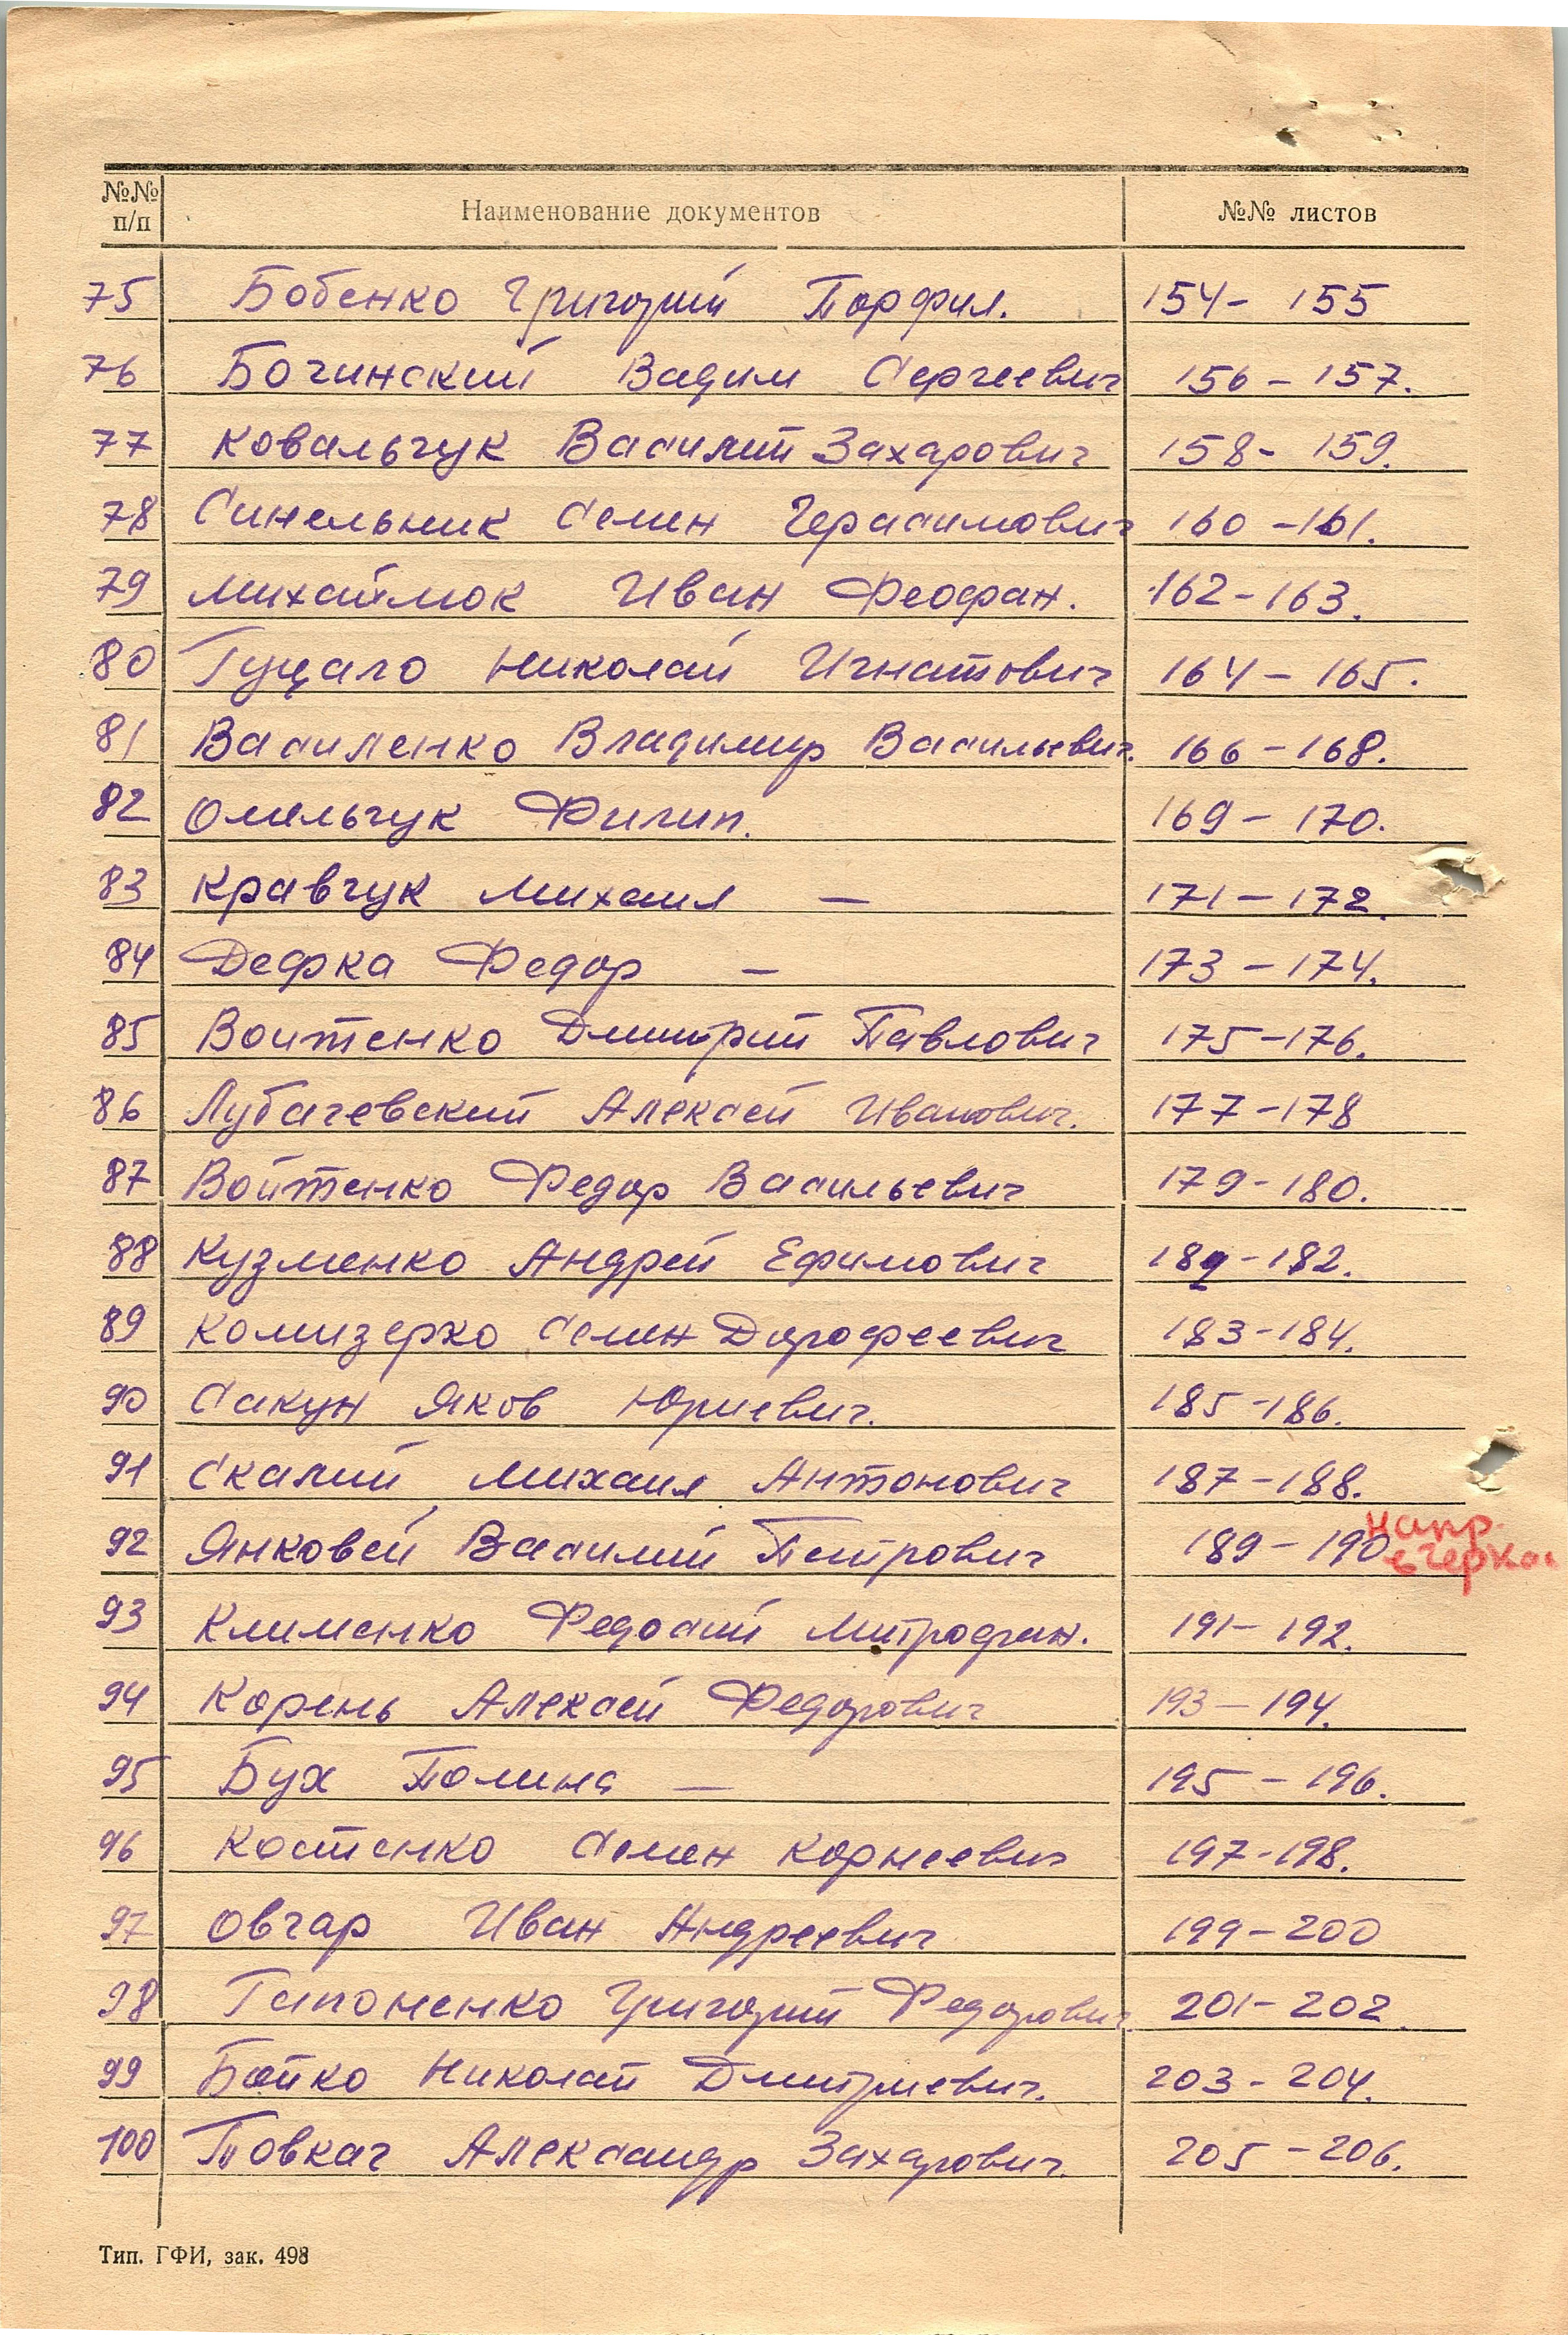 №№ п/п Наименование документов №№ листов
75 Бобенко Григорий Порфил. 154- 155
76 Бочинский Вадим Сергеевич 156 - 157.
77 Ковальчук Василий Захарович 158- 159.
78 Синельник Семен Герасимович 160 -161.
79 Михайлюк Иван Феофан. 162-163.
80 Гуцало Николай Игнатович 164 - 165.
81 Василенко Владимир Васильевич. 166 - 168.
82 Омельчук Филип. 169 - 170.
83 Кравчук Михаил — 171 - 172.
84 Дефка Федор — 173 - 174.
85 Войтенко Дмитрий Павлович 175 -176.
86 Лубачевский Алексей Иванович. 177 -178
87 Войтенко Федор Васильевич 179 -180.
88 Кузменко Андрей Ефимович -182.
89 Комизерко Семен Дорофеевич 183 -184.
90 Сакун Яков Юриевич. 185 -186.
91 Скалий Михаил Антонович 187 -188.
92 Янковей Василий Петрович 189 - 190 напр.
93 Клименко Федосий Митрофан. 191- 192.
94 Корень Алексей Федорович 193 - 194.
95 Бух Полина — 195 - 196.
96 Костенко Семен Корнеевич 197 -198.
97 Овчар Иван Андреевич 199 - 200
98 Гапоненко Григорий Федорович. 201- 202.
99 Бойко Николай Дмитриевич. 203 - 204.
100 Повкач Александр Захарович. 205 - 206.
Тип. ГФИ, зак. 498